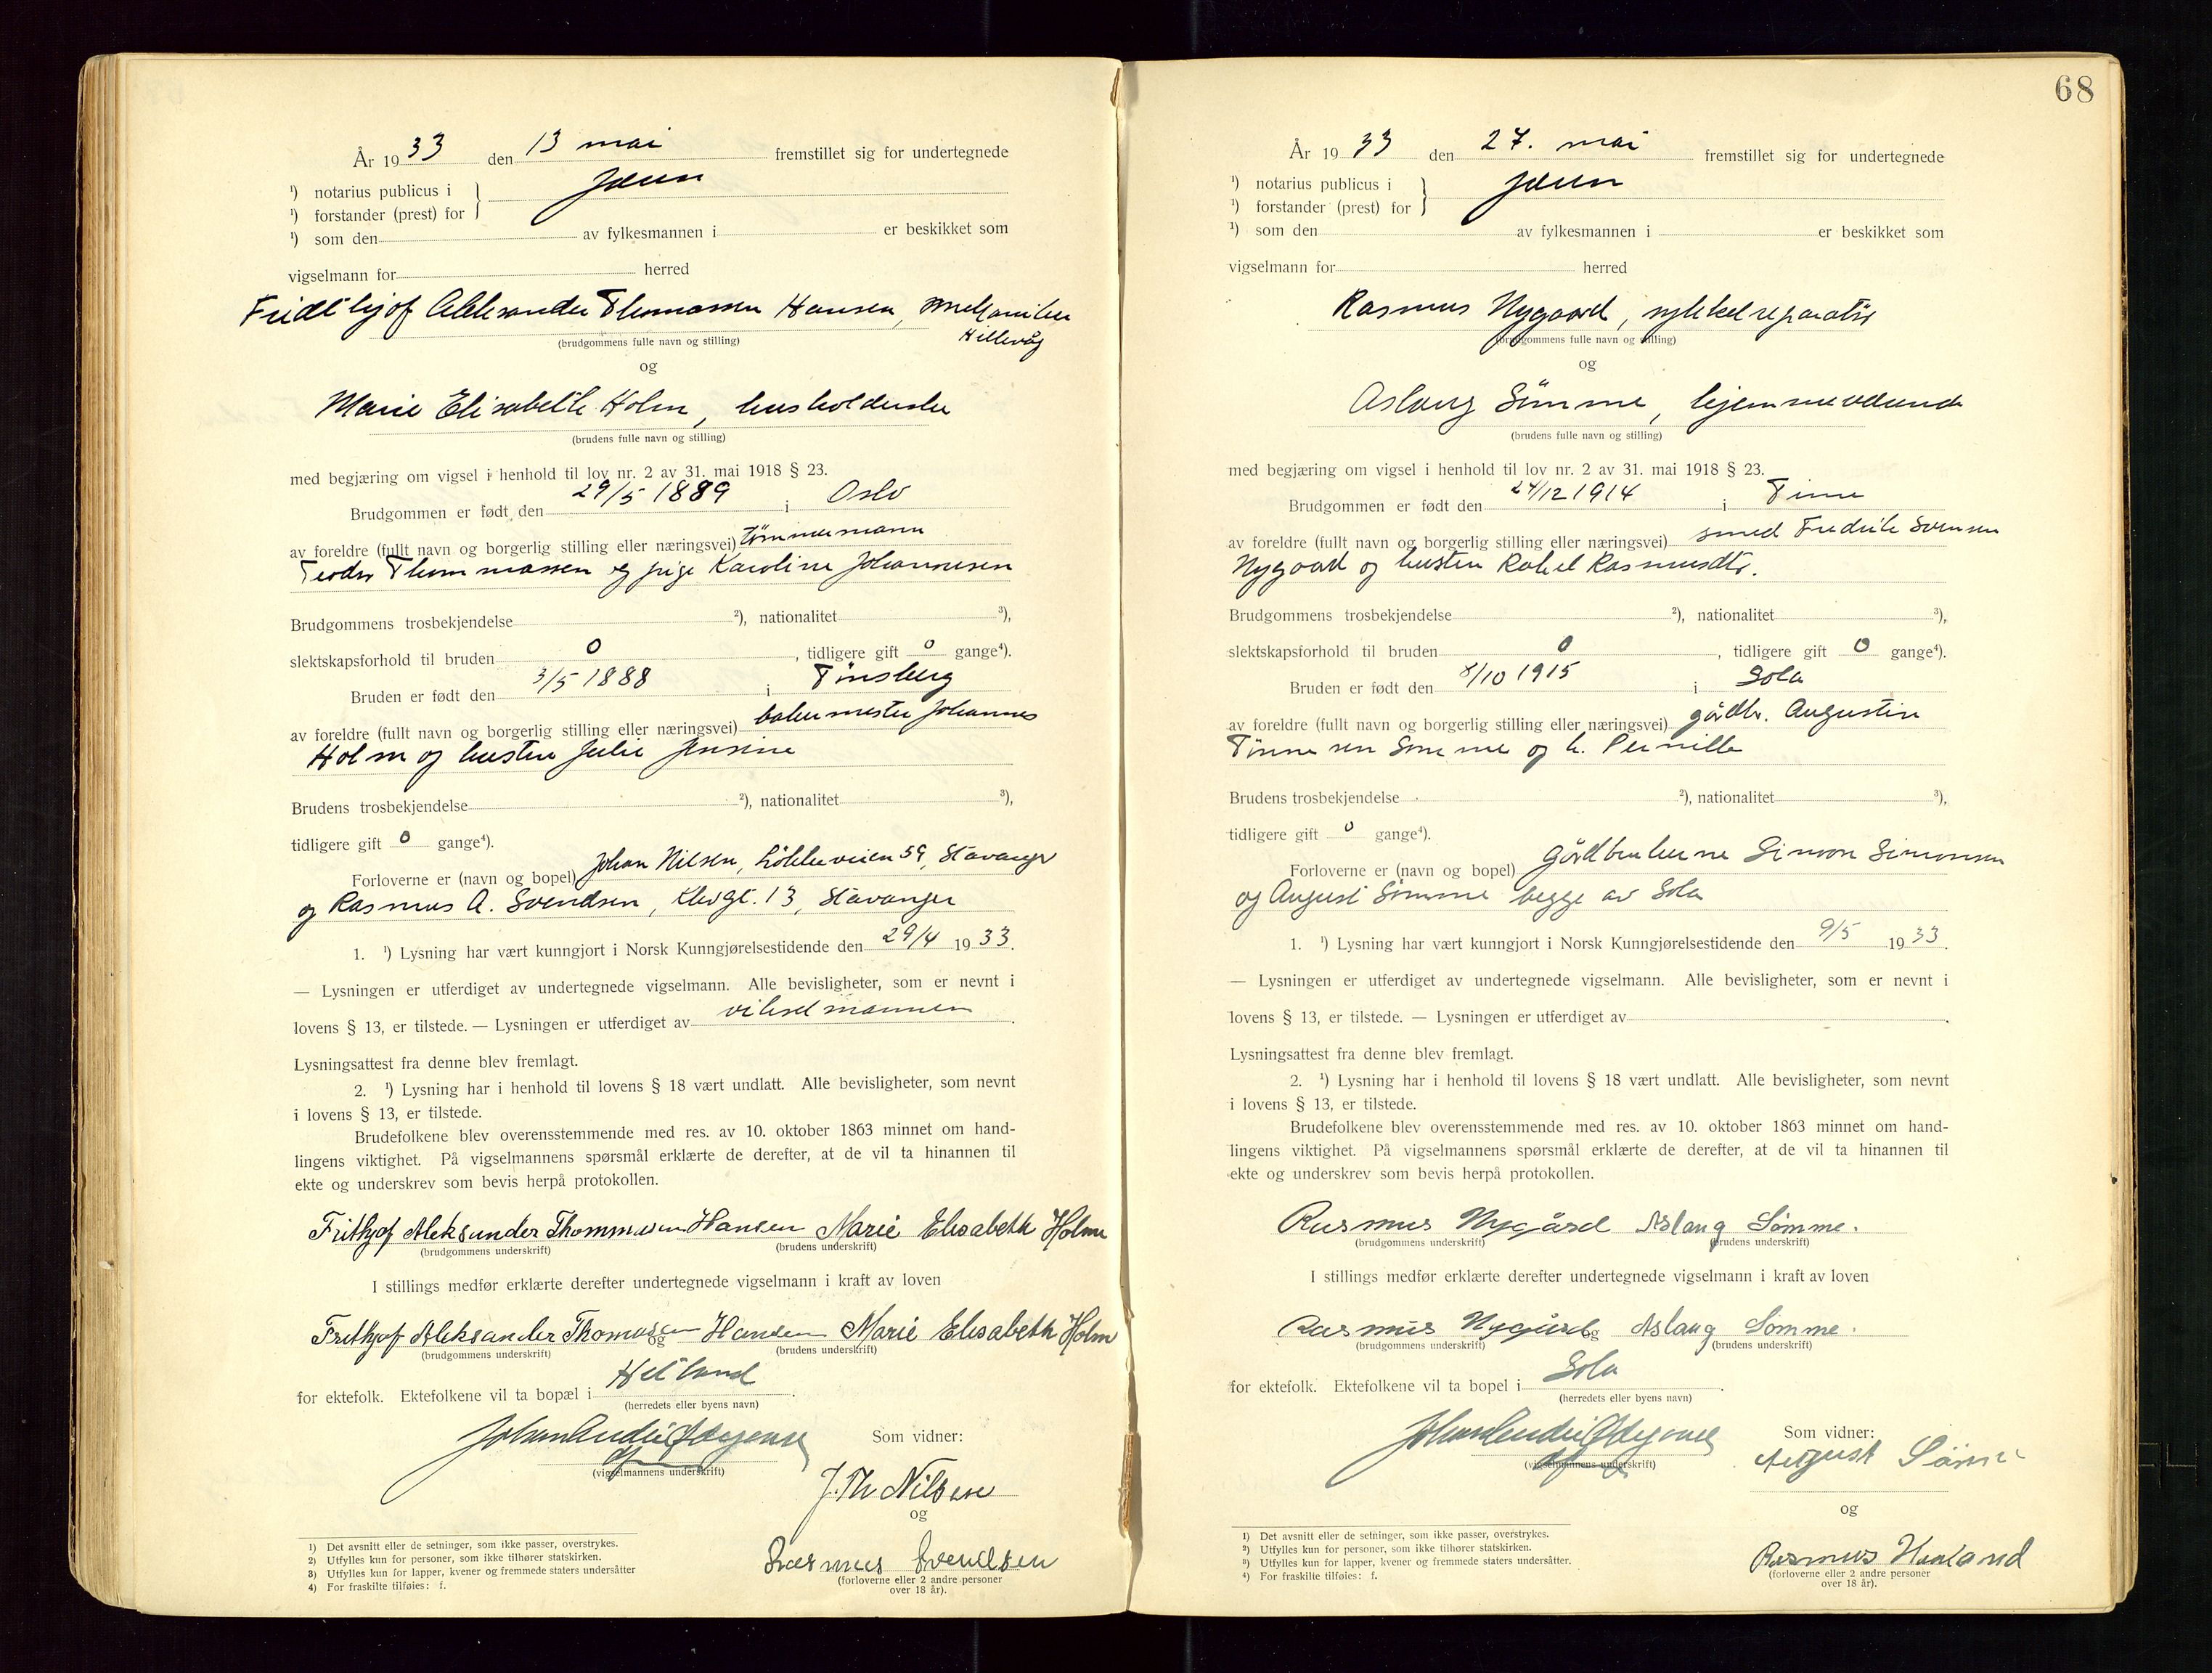 År 19 33 den 13 mai fremstillet sig for undertegnede
¹) notarius publicus i } Jæren
¹) forstander (prest) for
¹) som den av fylkesmannen i er beskikket som
vigselmann for herred
Fridthjof Aleksander Thomassen Hansen, mekaniker
Hillevåg
(brudgommens fulle navn og stilling)
og
Marie Elisabeth Holm, husholderske
(brudens fulle navn og stilling)
med begjæring om vigsel i henhold til lov nr. 2 av 31. mai 1918 § 23.
Brudgommen er født den 29/5 1889 i Oslo
av foreldre (fullt navn og borgerlig stilling eller næringsvei) tømmermann
Teodor Thommassen og pige Karoline Johannesen
Brudgommens trosbekjendelse ²), nationalitet ³),
slektskapsforhold til bruden 0, tidligere gift 0 gange⁴).
Bruden er født den 3/5 1888 i Tønsberg
av foreldre (fullt navn og borgerlig stilling eller næringsvei) bakermester Johannes
Holm og hustru Julie Jensine
Brudens trosbekjendelse ²), nationalitet ³),
tidligere gift 0 gange⁴).
Forloverne er (navn og bopel) Johan Nilsen, Løkkeveien 59, Stavanger
og Rasmus A. Svendsen, 13, Stavanger
1. ¹) Lysning har vært kunngjort i Norsk Kunngjørelsestidende den 29/4 19 33.
— Lysningen er utferdiget av undertegnede vigselmann. Alle bevisligheter, som er nevnt i
lovens § 13, er tilstede. — Lysningen er utferdiget av vikselmannen.
Lysningsattest fra denne blev fremlagt.
2. ¹) Lysning har i henhold til lovens § 18 vært undlatt. Alle bevisligheter, som nevnt
i lovens § 13, er tilstede.
Brudefolkene blev overensstemmende med res. av 10. oktober 1863 minnet om hand-
lingens viktighet. På vigselmannens spørsmål erklærte de derefter, at de vil ta hinannen til
ekte og underskrev som bevis herpå protokollen.
Frithjof Aleksander Thommasen Hansen Marie Elisabeth Holm
(brudgommens underskrift) (brudens underskrift)
I stillings medfør erklærte derefter undertegnede vigselmann i kraft av loven
Frithjof Aleksander Thomasen Hansen og Marie Elisabeth Holm
(brudgommens underskrift) (brudens underskrift)
for ektefolk. Ektefolkene vil ta bopæl i Hetland.
(herredets eller byens navn)
Som vidner:
(vigselmannens underskrift)
J. Th Nilsen
og
Rasmus Svendsen
(forloverne eller 2 andre personer
over 18 år).
1) Det avsnitt eller de setninger, som ikke passer, overstrykes.
2) Utfylles kun for personer, som ikke tilhører statskirken.
3) Utfylles kun for lapper, kvener og fremmede staters undersåtter
4) For fraskilte tilføies: f.
68
År 19 33 den 27. mai fremstillet sig for undertegnede
¹) notarius publicus i } Jæren
¹) forstander (prest) for
¹) som den av fylkesmannen i er beskikket som
vigselmann for herred
Rasmus Nygaard, sykkelreparatør
(brudgommens fulle navn og stilling)
og
Aslaug Sømme, hjemmeværende
(brudens fulle navn og stilling)
med begjæring om vigsel i henhold til lov nr. 2 av 31. mai 1918 § 23.
Brudgommen er født den 24/12 1914 i Time
av foreldre (fullt navn og borgerlig stilling eller næringsvei) smed Fredrik Svensen
Nygaard og hustru Rakel Rasmusdtr.
Brudgommens trosbekjendelse ²), nationalitet ³),
slektskapsforhold til bruden 0, tidligere gift 0 gange⁴).
Bruden er født den 8/10 1915 i Sola
av foreldre (fullt navn og borgerlig stilling eller næringsvei) gårdbr. Augustin
Tønnesen Sømme og h. Pernille
Brudens trosbekjendelse ²), nationalitet ³),
tidligere gift 0 gange⁴).
Forloverne er (navn og bopel) gårdbrukerne Simon Simonsen
og August Sømme begge av Sola
1. ¹) Lysning har vært kunngjort i Norsk Kunngjørelsestidende den 9/5 19 33.
— Lysningen er utferdiget av undertegnede vigselmann. Alle bevisligheter, som er nevnt i
lovens § 13, er tilstede. — Lysningen er utferdiget av.
Lysningsattest fra denne blev fremlagt.
2. ¹) Lysning har i henhold til lovens § 18 vært undlatt. Alle bevisligheter, som nevnt
i lovens § 13, er tilstede.
Brudefolkene blev overensstemmende med res. av 10. oktober 1863 minnet om hand-
lingens viktighet. På vigselmannens spørsmål erklærte de derefter, at de vil ta hinannen til
ekte og underskrev som bevis herpå protokollen.
Rasmus Nygård Aslaug Sømme.
(brudgommens underskrift) (brudens underskrift)
I stillings medfør erklærte derefter undertegnede vigselmann i kraft av loven
Rasmus Nygård og Aslaug Sømme.
(brudgommens underskrift) (brudens underskrift)
for ektefolk. Ektefolkene vil ta bopel i Sola.
(herredets eller byens navn)
Som vidner:
(vigselmannens underskrift)
August Sømme
og
Rasmus Haaland
(forloverne eller 2 andre personer
over 18 år).
1) Det avsnitt eller de setninger, som ikke passer, overstrykes.
2) Utfylles kun for personer, som ikke tilhører statskirken.
3) Utfylles kun for lapper, kvener og fremmede staters undersåtter.
4) For fraskilte tilføies: f.